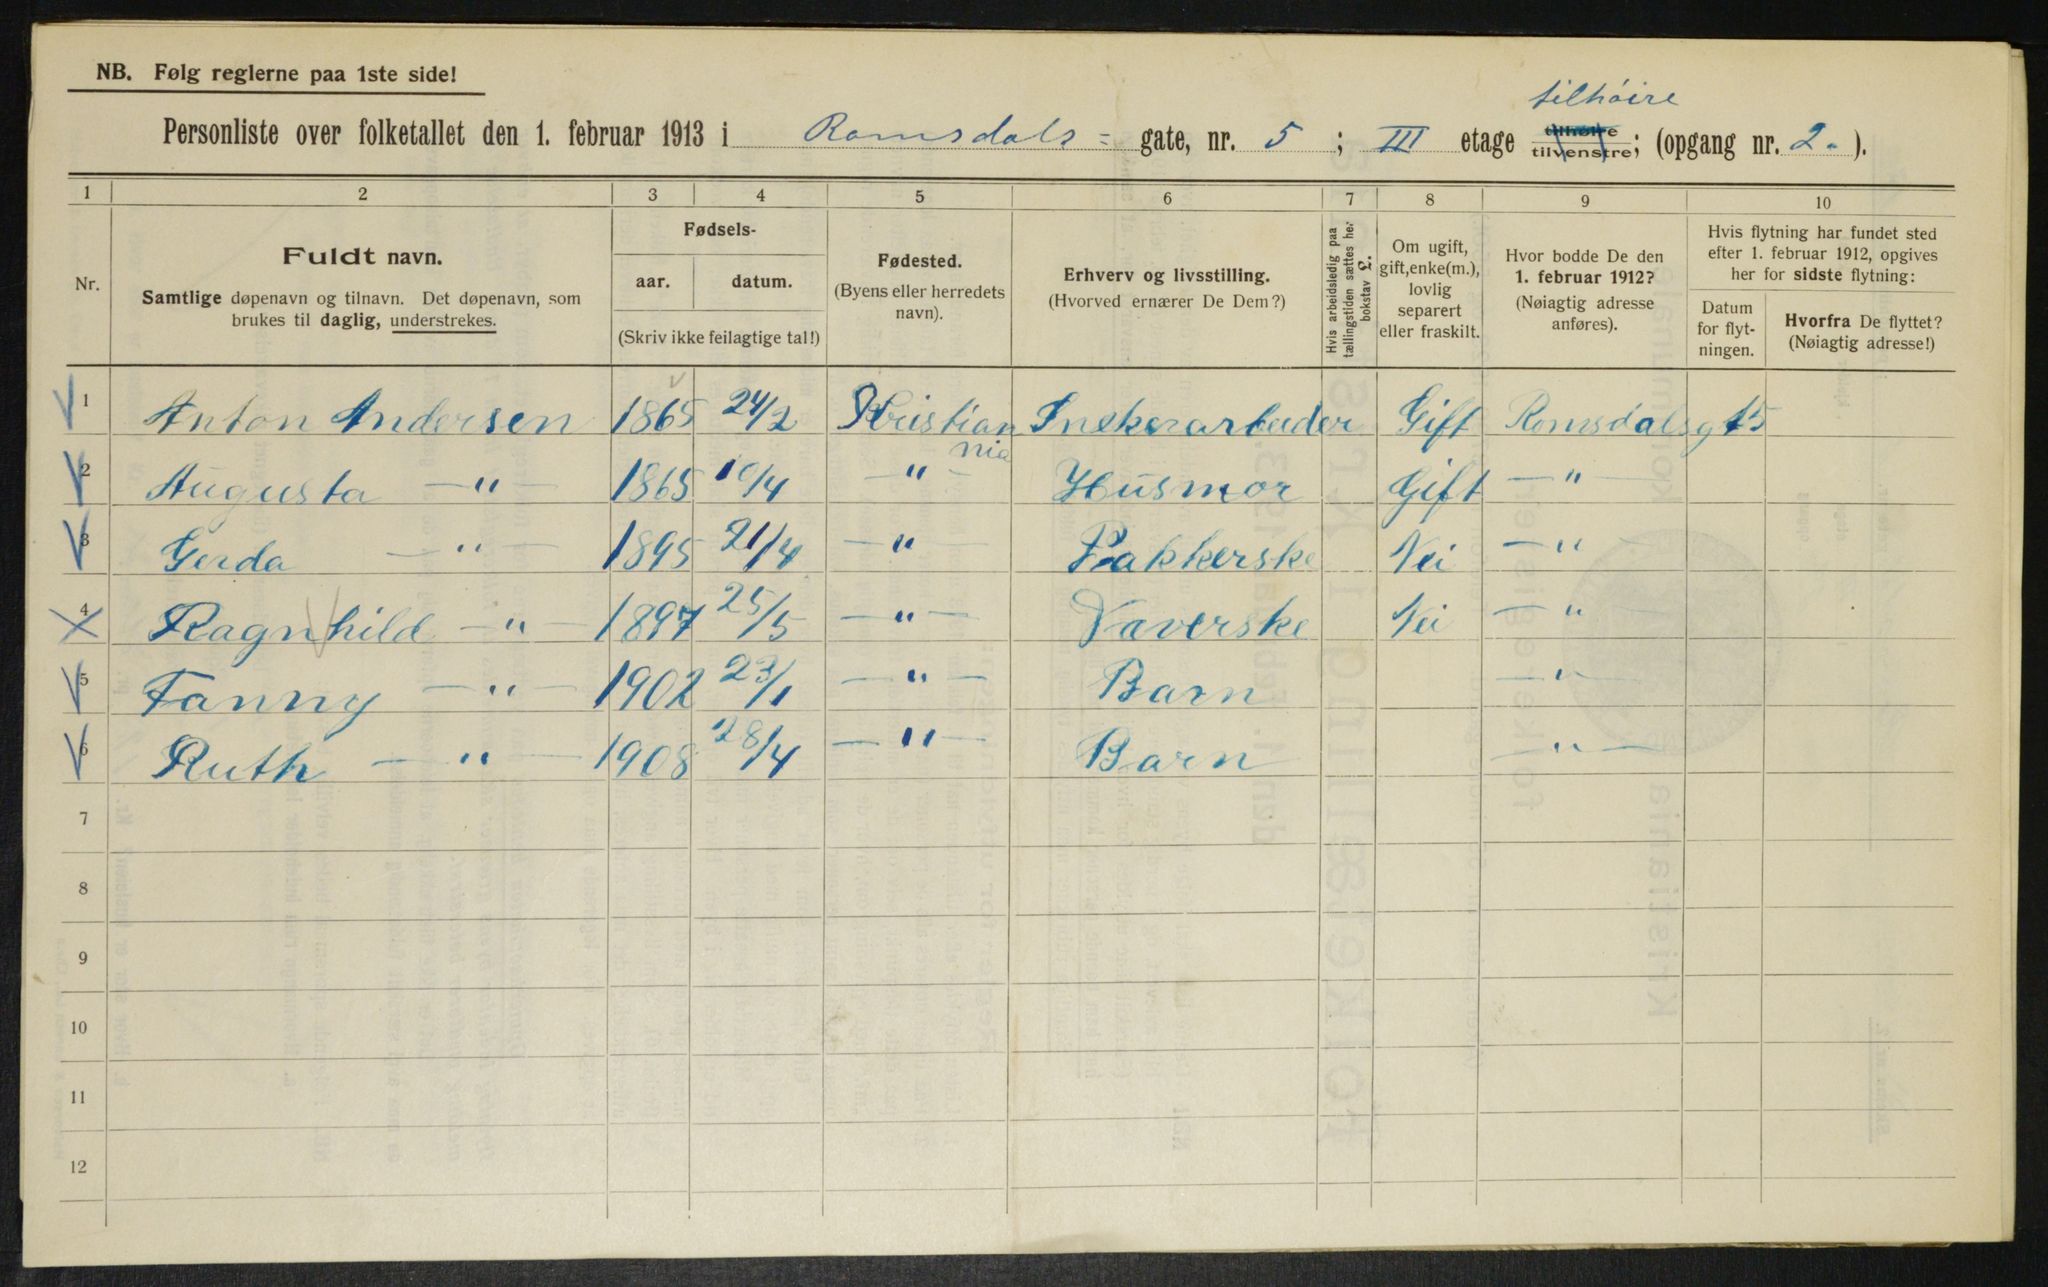 NB. Følg reglerne paa 1ste side!
tilhøire
Personliste over folketallet den 1. februar 1913 i Romsdals= gate, nr. 5 ; III etage tilhøire tilvenstre; (opgang nr. 2. ).
1 2 3 4 5 6 7 8 9 10
Nr.
Fuldt navn.
Samtlige døpenavn og tilnavn. Det døpenavn, som
brukes til daglig, understrekes.
Fødsels-
aar. datum.
(Skriv ikke feilagtige tal!)
Fødested.
(Byens eller herredets
navn).
Erhverv og livsstilling.
(Hvorved ernærer De Dem?)
Hvis arbeidsledig paa
tællingstiden sættes her
bokstav L.
Om ugift,
gift, enke(m.),
lovlig
separert
eller fraskilt.
Hvor bodde De den
1. februar 1912?
(Nøiagtig adresse
anføres).
Hvis flytning har fundet sted
efter 1. februar 1912, opgives
her for sidste flytning:
Datum
for flyt-
ningen.
Hvorfra De flyttet?
(Nøiagtig adresse!)
1 Anton Andersen 1865 24/2 Kristian Snekerarbeider Gift Romsdalsgt 5
nia
2 Augusta — " — 1865 10/4 — " — Husmor Gift — " —
3 Gerda — " — 1895 21/4 — " — Pakkerske Nei — " —
4 Ragnhild — " — 1897 25/5 — " — Væverske Nei — " —
5 Fanny — " — 1902 23/1 — " — Barn — " —
6 Ruth — " — 1908 28/4 — " — Barn — " —
7
8
9
10
11
12